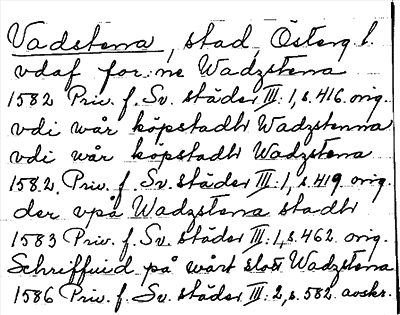 Vadstena, stad, Österg l.
vdaf for:ne Wadzstena
1582 Priv. f. Sv. städer III:1, s. 416. orig.
vdi wår köpstadh Wadzstenna
vdi wår köpstadh Wadzstena
1582. Priv. f. Sv. städer III:1, s. 419 orig.
der vpå Wadzstena stadh
1583 Priv. f. Sv. städer III:1, s. 462. orig.
Schriffuid på wårt slott Wadzstena
1586 Priv. f. Sv. städer III:2, s. 582. avskr.